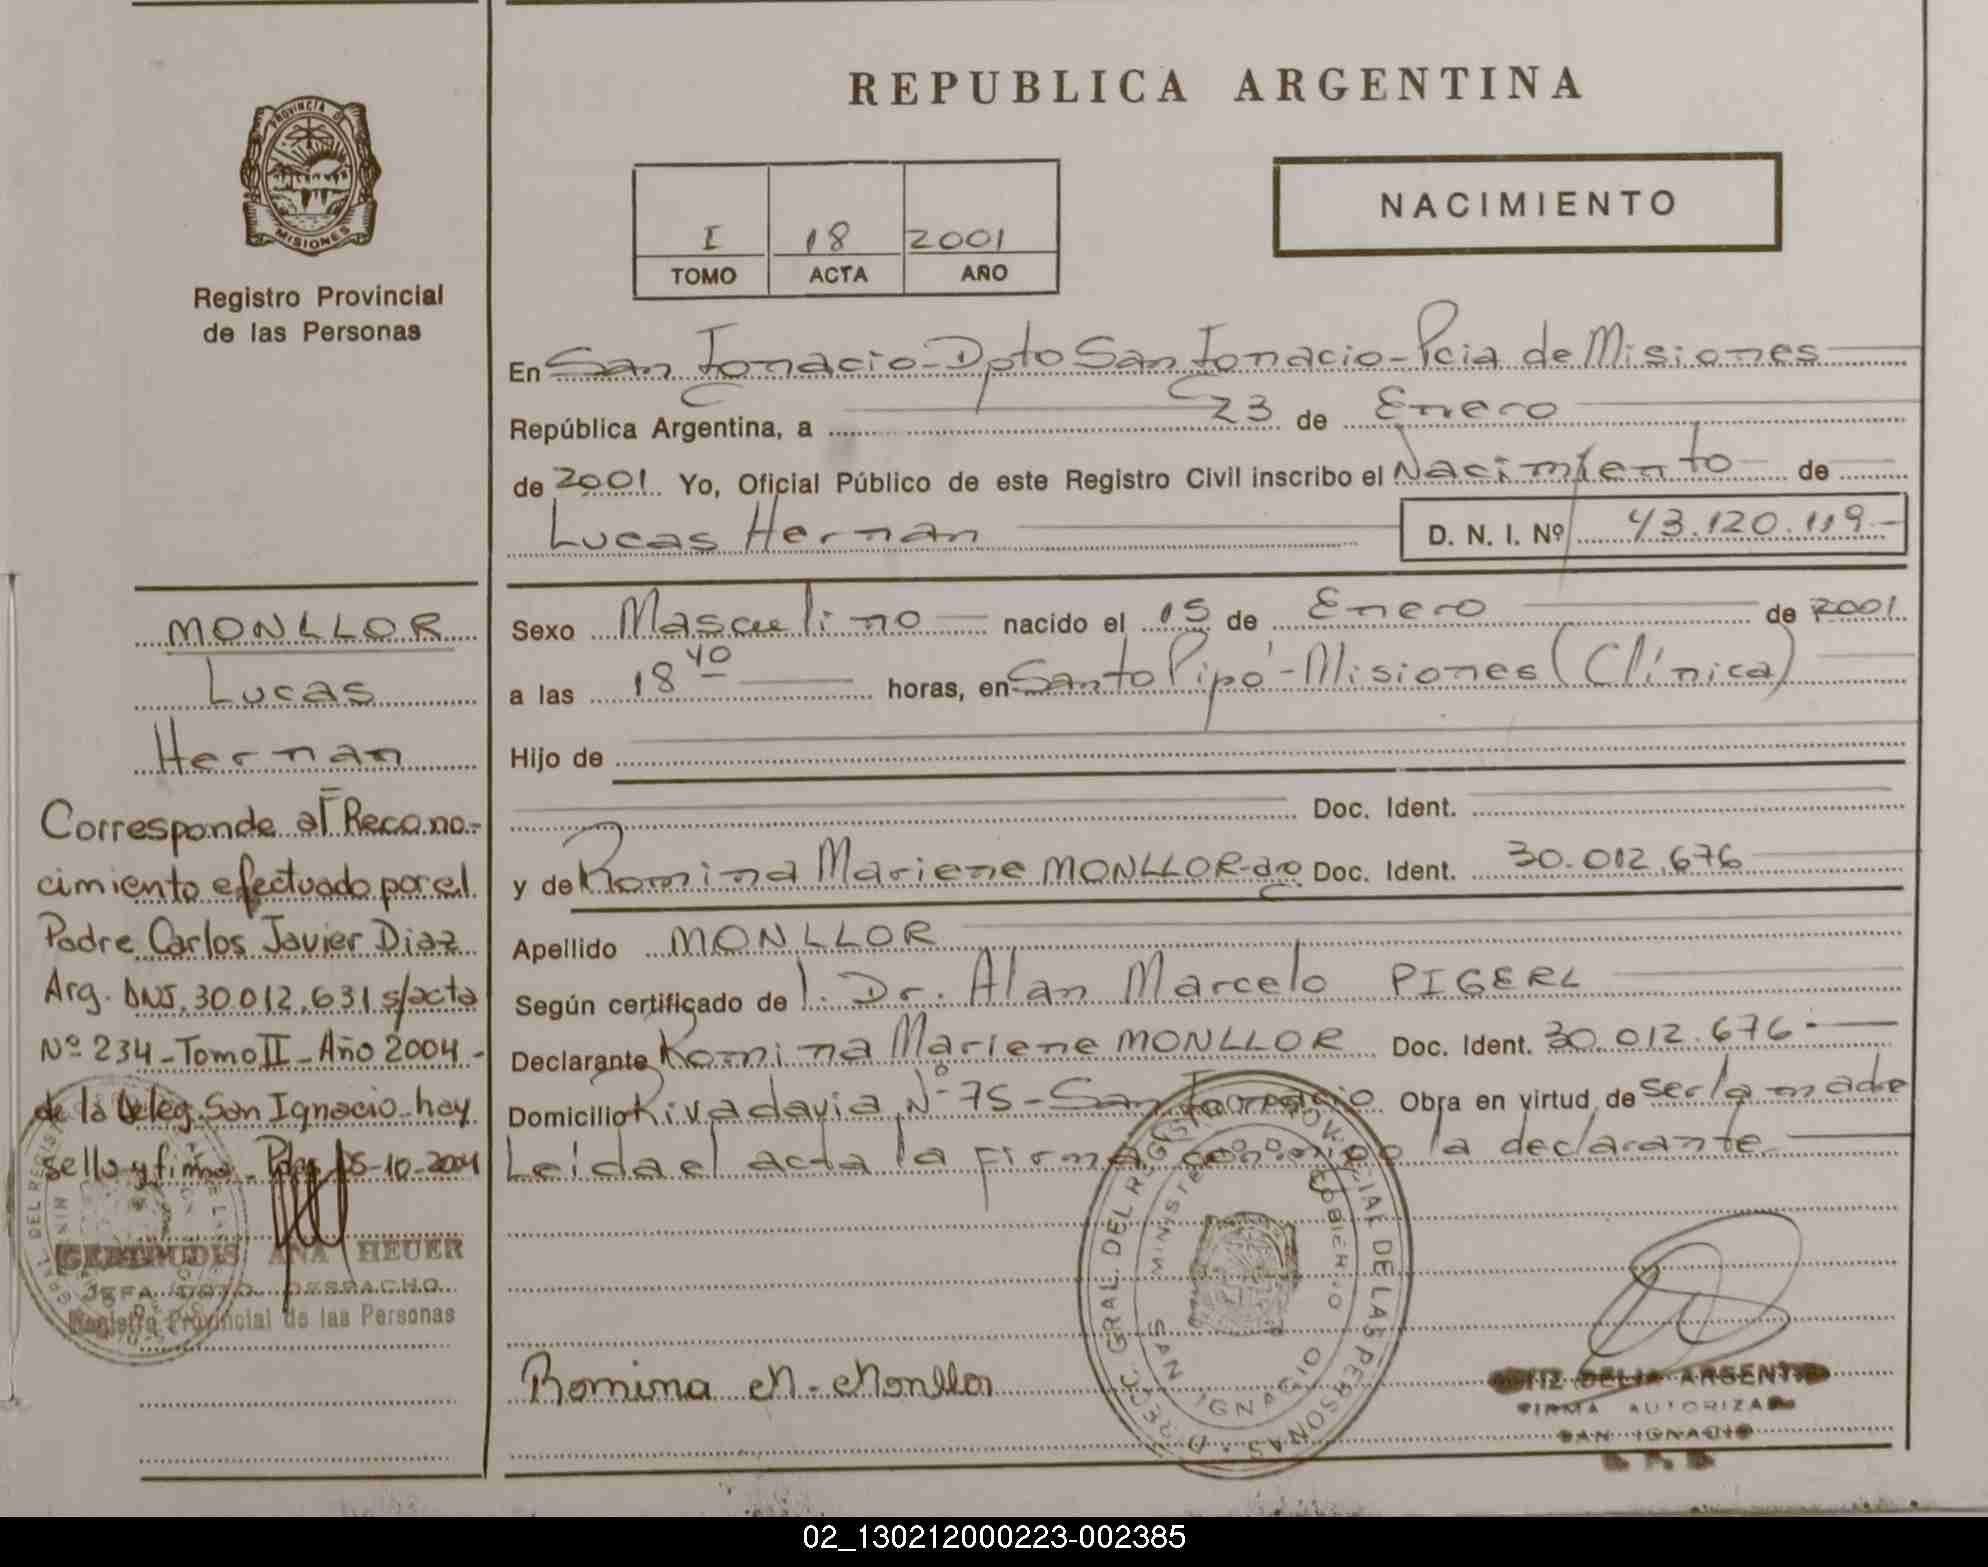 REPUBLICA ARGENTINA
PROVINCIA DE
MISIONES
Registro Provincial
de las Personas
I 18 2001
TOMO ACTA AÑO
NACIMIENTO
En San Ignacio-Dpto San Ignacio-Pcia de Misiones
República Argentina, a 23 de Enero
de 2001 Yo, Oficial Público de este Registro Civil inscribo el Nacimiento de
Lucas Hernan D. N. I. Nº 43.120.119.-
Sexo Masculino nacido el 15 de Enero de 2001
a las 18 40 horas, en Santo Pipó-Misiones (Clínica)
Hijo de
Doc. Ident.
y de Romina Mariene MONLLOR-arg Doc. Ident. 30.012.676
Apellido MONLLOR
Según certificado de l. Dr. Alan Marcelo PIGERL
Declarante Romina Mariene MONLLOR Doc. Ident. 30.012.676.-
Domicilio Rivadavia Nº 75-San Ignacio Obra en virtud de ser la madre
Leida el acta la firma conmigo la declarante
Romina M. Monllor
DIREC. GRAL. DEL REGISTRO PROVINCIAL DE LAS PERSONAS
MINISTERIO GOBIERNO
SAN IGNACIO
DELIA ARGENTI
FIRMA AUTORIZADA
SAN IGNACIO
MONLLOR
Lucas
Hernan
Corresponde al Recono-
cimiento efectuado por el
Padre Carlos Javier Diaz
Arg. DNI. 30.012.631 s/acta
Nº 234-Tomo II-Año 2004.-
de la Deleg. San Ignacio-hoy
sello y firma. Pdas 05-10-2004
GERTRUDIS ANA HEUER
JEFA DPTO. DESPACHO
Registro Provincial de las Personas
02_130212000223-002385